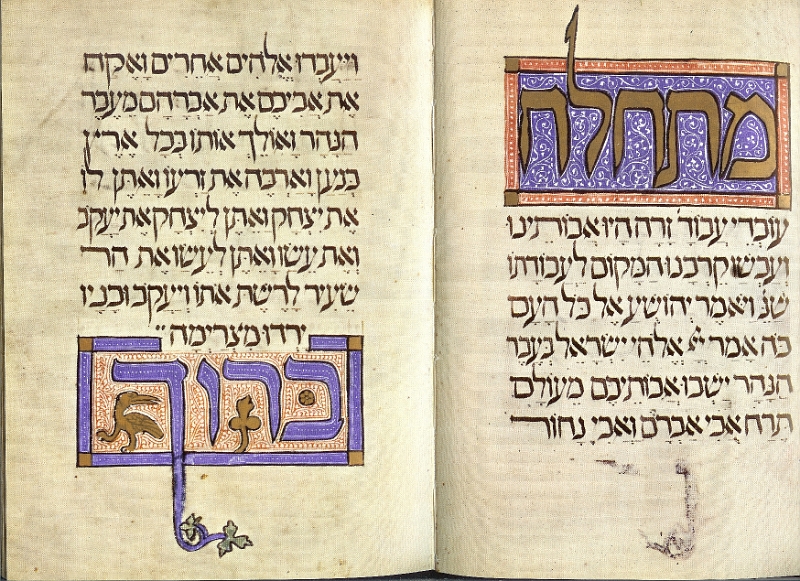 מתחלה
עובדי עבוד׳ זרה היו אבותינו
ועכשו קרבנו המקום לעבודתו
שנ׳ ויאמר יהושע אל כל העם
כה אמר ייי אלהי ישראל בעבר
הנהר ישבו אבותיכם מעולם
תרח אבי אברהם ואבי נחור
ויעבדו אלהים אחרים ואקח
את אביכם את אברהם מעבר
הנהר ואולך אותו בכל ארץ
כנען וארבה את זרעו ואתן לו
את יצחק ואתן ליצחק את יעקב
ואת עשו ואתן לעשו את הר
שעיר לרשת אתו ויעקב ובניו
ירדו מצרימה
ברוך